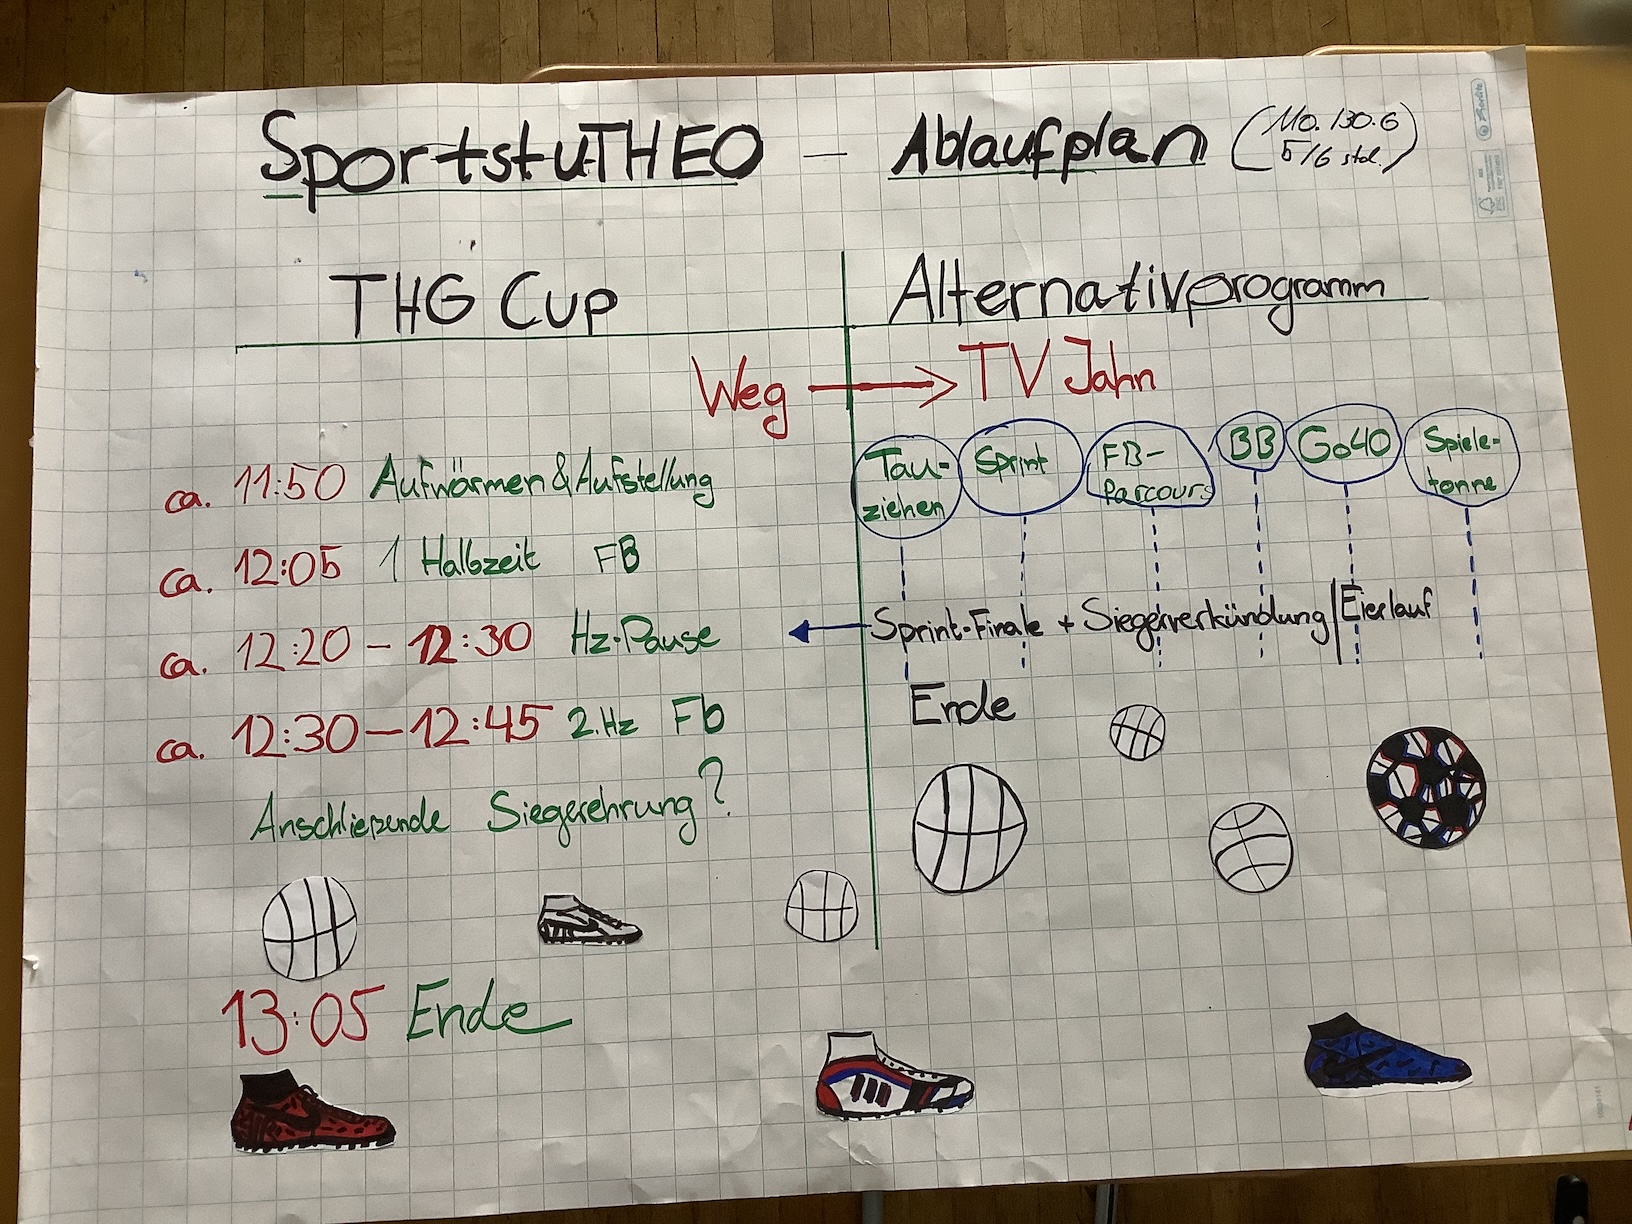 SportstuTHEO – Ablaufplan (Mo. 30.6
5/6 std.)
THG Cup
Alternativprogramm
Weg → TV Jahn
Tau-
ziehen
Sprint
FB-
Parcours
BB
Go40
Spiele-
tonne
ca. 11:50 Aufwärmen & Aufstellung
ca. 12:05 1 Halbzeit FB
ca. 12:20 – 12:30 Hz-Pause
Sprint-Finale + Siegerverkündung | Eierlauf
ca. 12:30 – 12:45 2.Hz Fb
Ende
Anschließende Siegerehrung?
13:05 Ende
herlitz